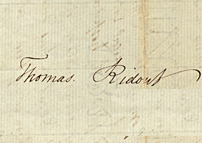 Thomas. Ridout